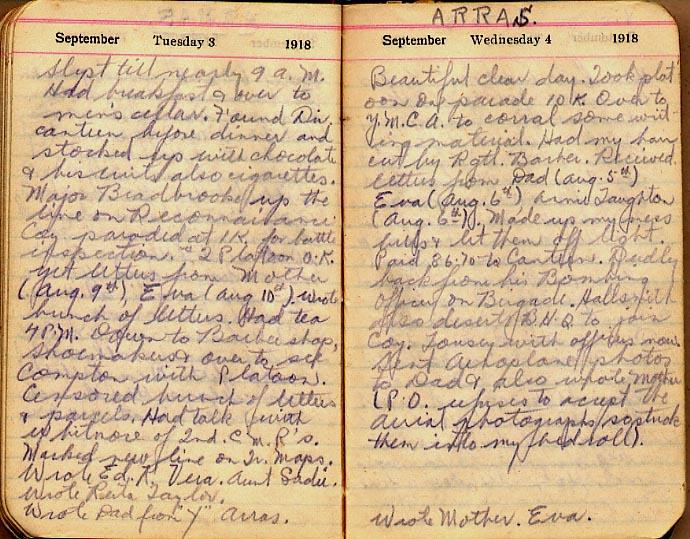 September Tuesday 3 1918
Slept till nearly 9 a.m.
Had breakfast & over to
men's cellar. Found Div.
canteen before dinner and
stocked up with chocolate
& biscuits also cigarettes.
Major Bradbrooke up the
line on Reconnaisance
Coy paraded at 1 K. for battle
inspection. #2 Platoon O.K.
Get letters from Mother
(Aug. 9th), Eva (Aug 10th). Wrote
bunch of letters. Had tea
4 P.M. Down to Barber shop,
Shoemakers & over to see
Compton with Platoon.
Censored bunch of letters
& parcels. Had talk with
Whitmore of 2nd. C.M.R's.
Marked new line on Tr. Maps.
Wrote Ed. K. Vera. Aunt Sadie.
Wrote Reita Taylor.
Wrote Dad from "Y" Arras.
ARRAS.
September Wednesday 4 1918
Beautiful clear day. Took plat
oon on parade 10 K. Over to
Y.M.C.A. to corral some writ
ing material. Had my hair
cut by Batt. Barber. Received
letters from Dad (Aug. 5th)
Eva (Aug. 6th) Arnie Taughton
(Aug. 6th). Made up my mess
bills & let them off light.
Paid 86.70 to Canteen.
back from his Bombing
Officer on Brigade. Hallsmith
also deserts B.H.Q. to join
Coy. Lousey with officers now.
Sent Aeroplane photos
to Dad & also wrote Mother
(P.O. refuses to accept the
aerial photographs so stuck
them into my bed roll).
Wrote Mother. Eva.